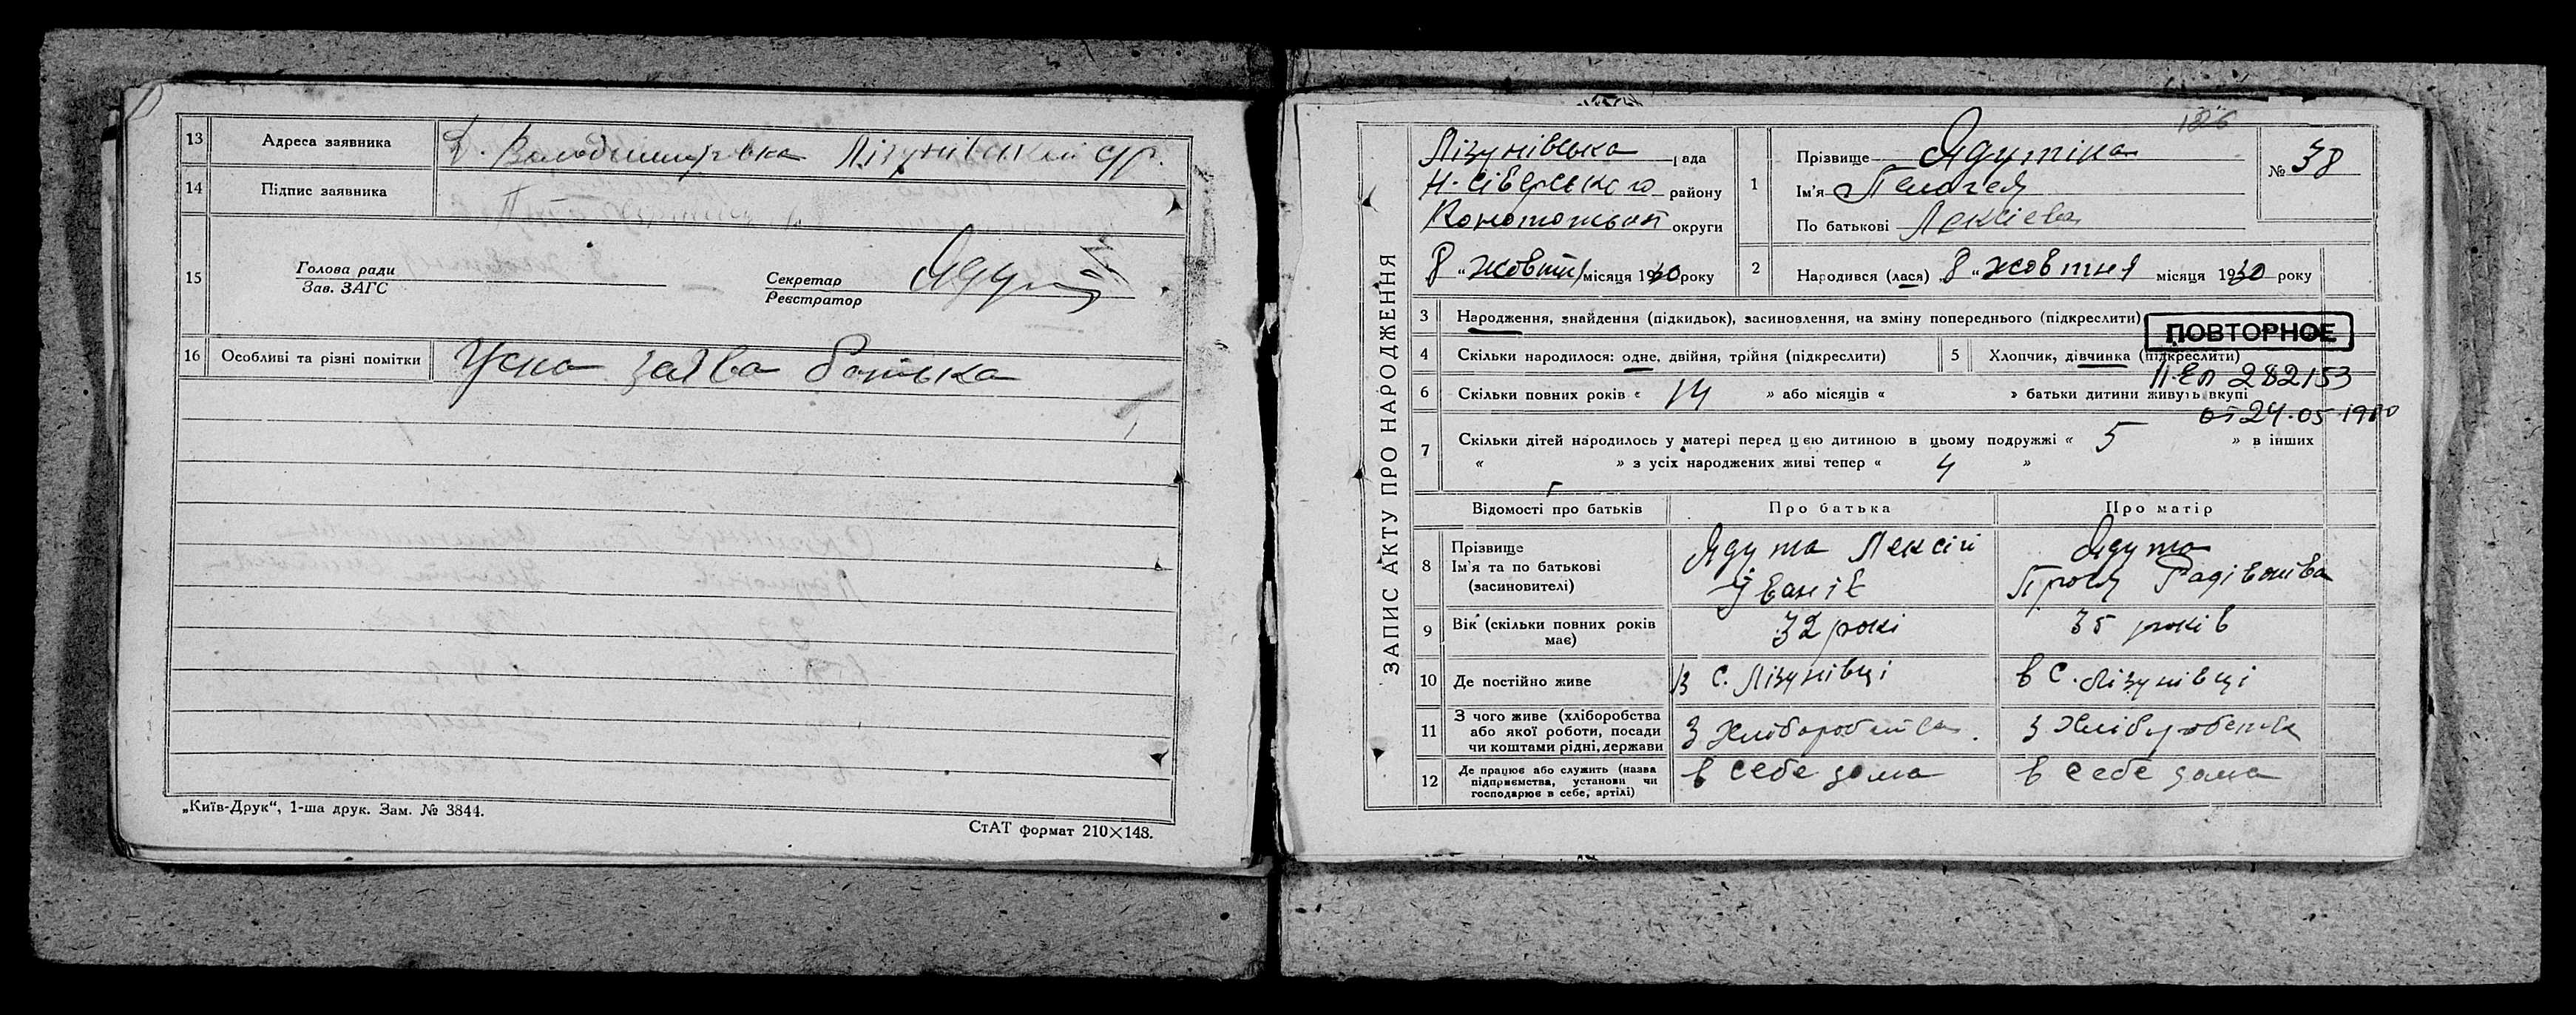 13 Адреса заявника Д. Володимировка Лізунівської с/р.
14 Підпис заявника
15 Голова ради
Зав. ЗАГС
Секретар
Реєстратор
16 Особливі та різні помітки Усна заява батька
„Київ-Друк“, 1-ша друк. Зам. № 3844.
СтАТ формат 210×148.
ЗАПИС АКТУ ПРО НАРОДЖЕННЯ
126
Лізунівська рада
Н. Сіверського району
Конотопської округи
8 „ жовтня місяця 1930 року
1 Прізвище Ядутіна
Ім'я Пелагея
По батькові Лексієва
№ 38
2 Народився (лася) 8 „ жовтня місяця 1930 року
3 Народження, знайдення (підкидьок), засиновлення, на зміну попереднього (підкреслити)
ПОВТОРНОЕ
4 Скільки народилося: одне, двійня, трійня (підкреслити) 5 Хлопчик, дівчинка (підкреслити)
II-ЕЛ 282153
6 Скільки повних років « 14 » або місяців « » батьки дитини живуть вкупі
от 24.05.1980
7 Скільки дітей народилось у матері перед цією дитиною в цьому подружжі « 5 » в інших
« » з усіх народжених живі тепер « 4 »
Відомості про батьків Про батька Про матір
8 Прізвище
Ім'я та по батькові
(засиновителі)
Ядута Лексій
Іванів
Ядута
Прося Радівонівa
9 Вік (скільки повних років має) 32 рокі 35 років
10 Де постійно живе В с. Лізунівці в с. Лізунівці
11 З чого живе (хліборобства
або якої роботи, посади
чи коштами рідні, держави
З Хліборобства З Хліборобства
12 Де працює або служить (назва
підприємства, установи чи
господарює в себе, артілі)
в себе дома в себе дома